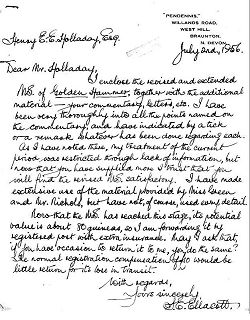 "PENDENNIS,"
WILLANDS ROAD,
WEST HILL,
BRAUNTON,
N. DEVON.
Henry E. E. Holladay, Esq.
July 2nd, 1956.
Dear Mr. Holladay,
I enclose the revised and extended
MS. of Golden Hammer, together with the additional
material — your commentary, letters, etc. I have
been very thoroughly into all the points named on
the commentary, and have indicated by a tick
or a remark whatever has been done regarding each.
As I have noted there, my treatment of the current
period, was restricted through lack of information, but
now that you have supplied more I trust that you
will find the revised MS. satisfactory. I have made
extensive use of the material provided by Miss Green
and Mr. Nichols, but have not, of course, used every detail.
Now that the MS. has reached this stage, its potential
value is about 80 guineas, so I am forwarding it by
registered post with extra insurance. May I ask that,
if you have occasion to return it to me, you do the same?
The normal registration compensation of would be
little return for its loss in transit.
With regards,
Yours sincerely,